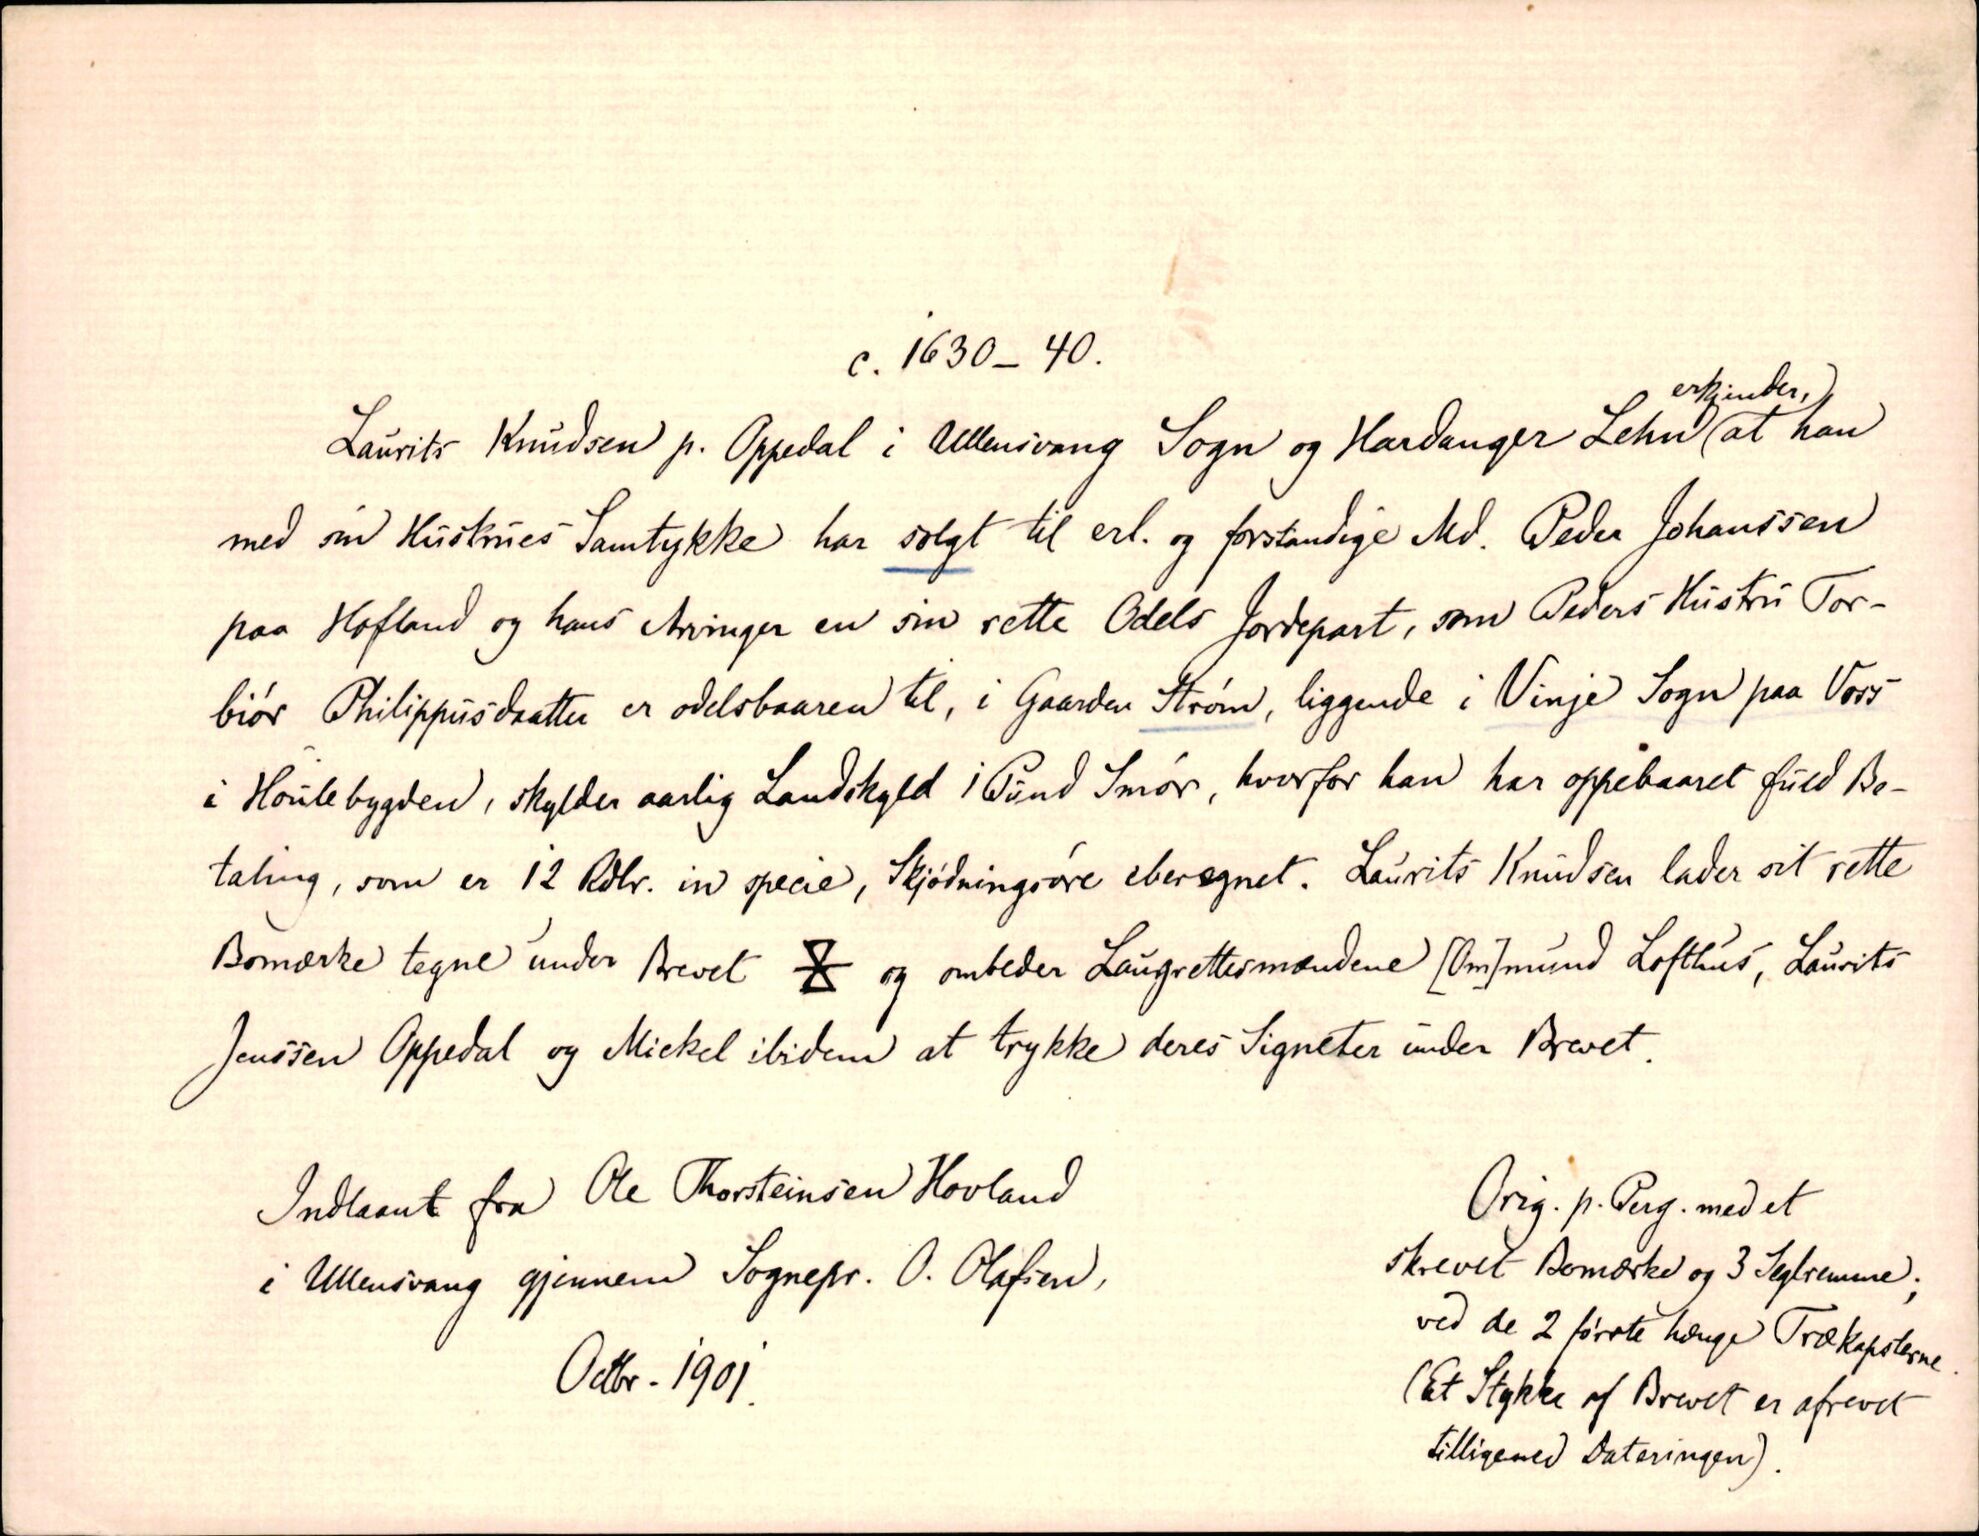 c. 1630-40.
Laurits Knudsen p. Oppedal i Ullensvang Sogn og Hardanger Lehn erkjender, at han
med sin Hustrues Samtykke har solgt til erl. og forstandige Md. Peder Johanssen
paa Hofland og hans Arvinger en sin rette Odels Jordepart, som Peders Hustru Tor-
biør Philippusdaatter er odelsbaaren til, i Gaarden Strøm, liggende i Vinje Sogn paa Voss
i Houlebygden, skylder aarlig Landskyld 1 Pund Smør, hvorfor han har oppebaaret fuld Be-
taling, som er 12 Rdlr. in specie, Skjødningsøre uberegnet. Laurits Knudsen lader sit rette
Bomærke tegne under Brevet og ombeder Laugrettesmændene [Om]mund Lofthus, Laurits
Jenssen Oppedal og Mickel ibidem at trykke deres Signeter under Brevet.
Indlaant fra Ole Thorsteinsen Hovland
i Ullensvang gjennem Sognepr. O. Olafsen,
Octbr. 1901.
Orig. p. Perg. med et
skrevet Bomærke og 3 Seglremme;
ved de 2 første hænge Trækapslerne.
(Et Stykke af Brevet er afrevet
tilligemed Dateringen).